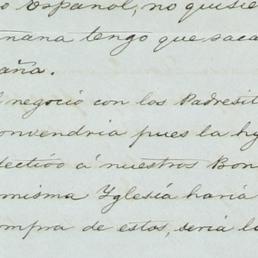 o Español, no quisie
nana tengo que saca
aña.
l negoció con los Padresit
onvendria pues la hy
fectivo á nuestros Bon
misma Yglesia haria
mpra de estos, seria la